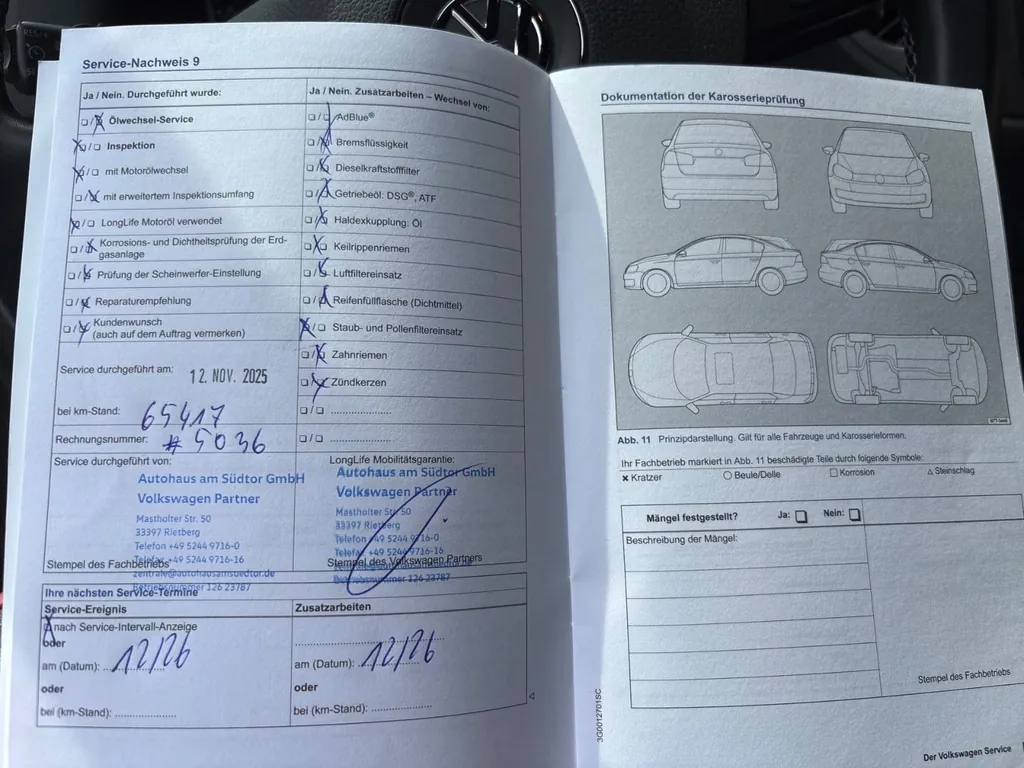 Service-Nachweis 9
Ja / Nein. Durchgeführt wurde:
❏ / ❏ Ölwechsel-Service
❏ / ❏ Inspektion
❏ / ❏ mit Motorölwechsel
❏ / ❏ mit erweitertem Inspektionsumfang
❏ / ❏ LongLife Motoröl verwendet
❏ / ❏ Korrosions- und Dichtheitsprüfung der Erd-
gasanlage
❏ / ❏ Prüfung der Scheinwerfer-Einstellung
❏ / ❏ Reparaturempfehlung
❏ / ❏ Kundenwunsch
(auch auf dem Auftrag vermerken)
Service durchgeführt am: 12. NOV. 2025
bei km-Stand: 65417
Rechnungsnummer: # 5036
Service durchgeführt von:
Autohaus am Südtor GmbH
Volkswagen Partner
Mastholter Str. 50
33397 Rietberg
Telefon +49 5244 9716-0
Telefax +49 5244 9716-16
zentrale@autohausamsuedtor.de
Betriebsnummer 126 23787
Stempel des Fachbetriebs
Ja / Nein. Zusatzarbeiten – Wechsel von:
❏ / ❏ AdBlue®
❏ / ❏ Bremsflüssigkeit
❏ / ❏ Dieselkraftstofffilter
❏ / ❏ Getriebeöl: DSG®, ATF
❏ / ❏ Haldexkupplung: Öl
❏ / ❏ Keilrippenriemen
❏ / ❏ Luftfiltereinsatz
❏ / ❏ Reifenfüllflasche (Dichtmittel)
❏ / ❏ Staub- und Pollenfiltereinsatz
❏ / ❏ Zahnriemen
❏ / ❏ Zündkerzen
❏ / ❏ ......................
❏ / ❏ ......................
LongLife Mobilitätsgarantie:
Autohaus am Südtor GmbH
Volkswagen Partner
Mastholter Str. 50
33397 Rietberg
Telefon +49 5244 9716-0
Telefax +49 5244 9716-16
Betriebsnummer 126 23787
Stempel des Volkswagen Partners
Ihre nächsten Service-Termine
Service-Ereignis
❏ nach Service-Intervall-Anzeige
oder
am (Datum): 12/26
oder
bei (km-Stand): ......................
Zusatzarbeiten
am (Datum): 12/26
oder
bei (km-Stand): ......................
Dokumentation der Karosserieprüfung
Abb. 11 Prinzipdarstellung. Gilt für alle Fahrzeuge und Karosserieformen.
Ihr Fachbetrieb markiert in Abb. 11 beschädigte Teile durch folgende Symbole:
✕ Kratzer ○ Beule/Delle ❏ Korrosion △ Steinschlag
Mängel festgestellt? Ja: ❏ Nein: ❏
Beschreibung der Mängel:
Stempel des Fachbetriebs
3G0012701SC
Der Volkswagen Service